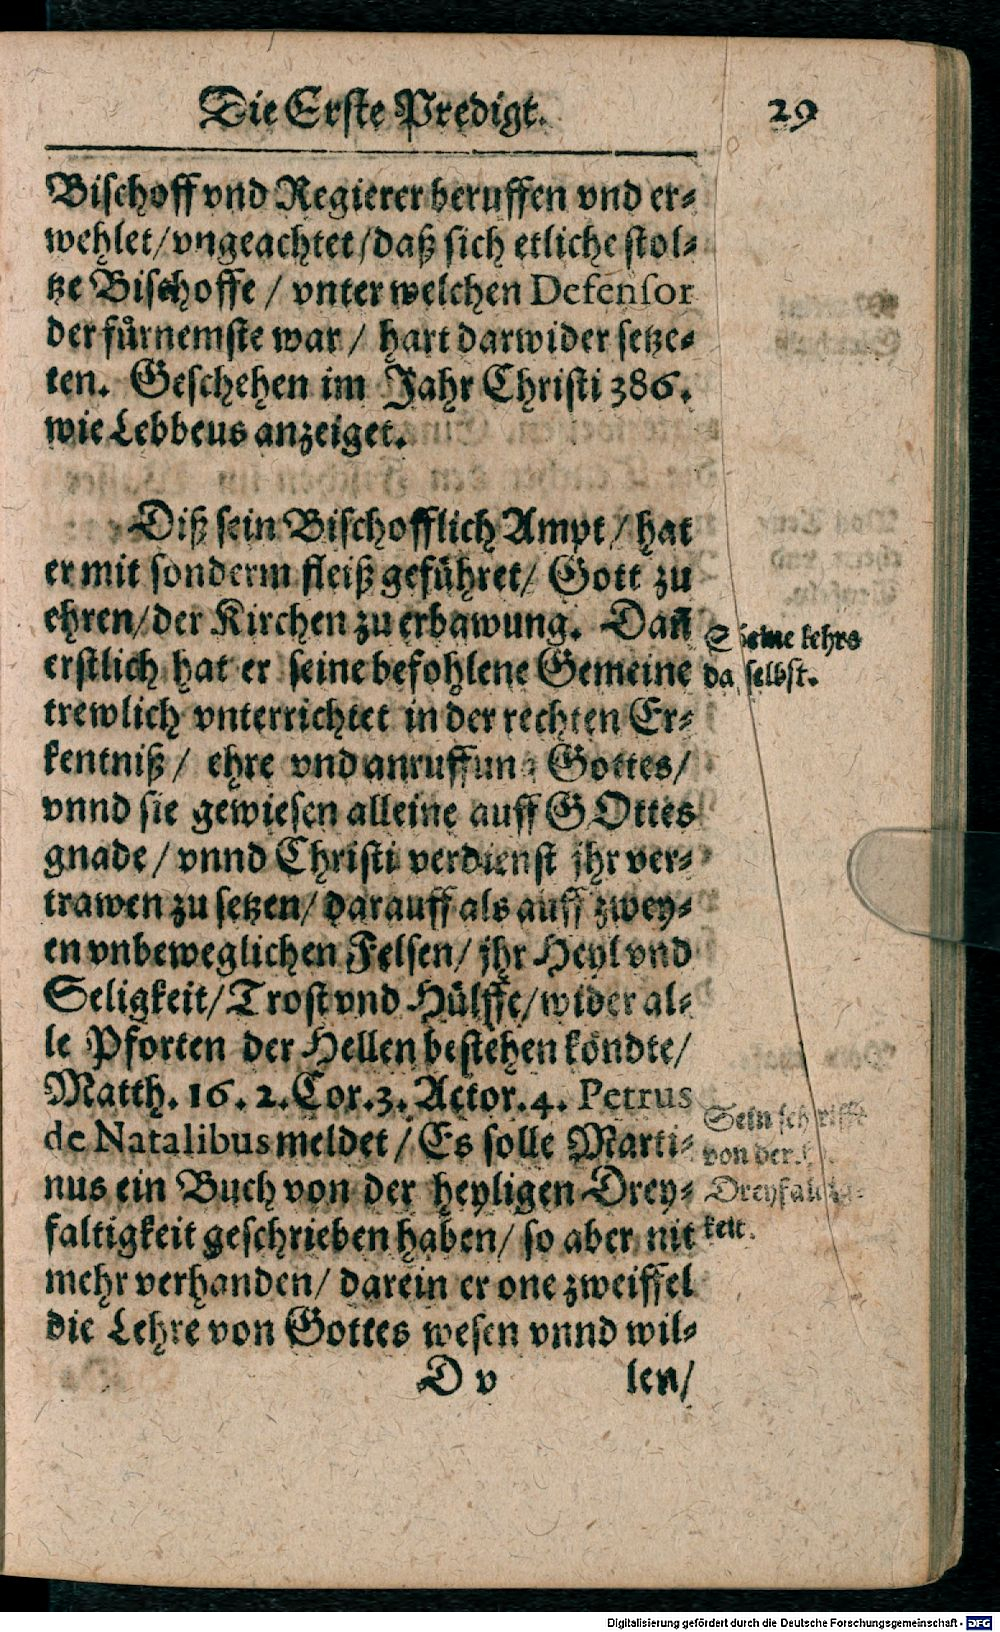 Die Erste Predigt. 29
Bischoff vnd Regierer beruffen vnd er-
wehlet/vngeachtet/daß sich etliche stol-
tze Bischoffe / vnter welchen Defensor
der fuͤrnemste war / hart darwider setze-
ten. Geschehen im Jahr Christi 386.
wie Lebbeus anzeiget.
Diß sein Bischofflich Ampt / hat
er mit sonderm fleiß gefuͤhret/ Gott zu
ehren/der Kirchen zu erbawung. Dañ
erstlich hat er seine befohlene Gemeine
trewlich vnterrichtet in der rechten Er-
kentniß / ehre vnd anruffung Gottes/
vnnd sie gewiesen alleine auff GOttes
gnade / vnnd Christi verdienst jhr ver-
trawen zu setzen/ darauff als auff zwey-
en vnbeweglichen Felsen/ jhr Heyl vnd
Seligkeit/Trost vnd Huͤlffe/wider al-
le Pforten der Hellen bestehen koͤndte/
Matth. 16. 2. Cor. 3. Actor. 4. Petrus
de Natalibus meldet / Es solle Marti-
nus ein Buch von der heyligen Drey-
faltigkeit geschrieben haben/ so aber nit
mehr verhanden/ darein er one zweiffel
die Lehre von Gottes wesen vnnd wil-
D v len/
Seine lehre
da selbst.
Sein schrifft
von der
Dreyfaltig-
keit.
Digitalisierung gefördert durch die Deutsche Forschungsgemeinschaft - DFG